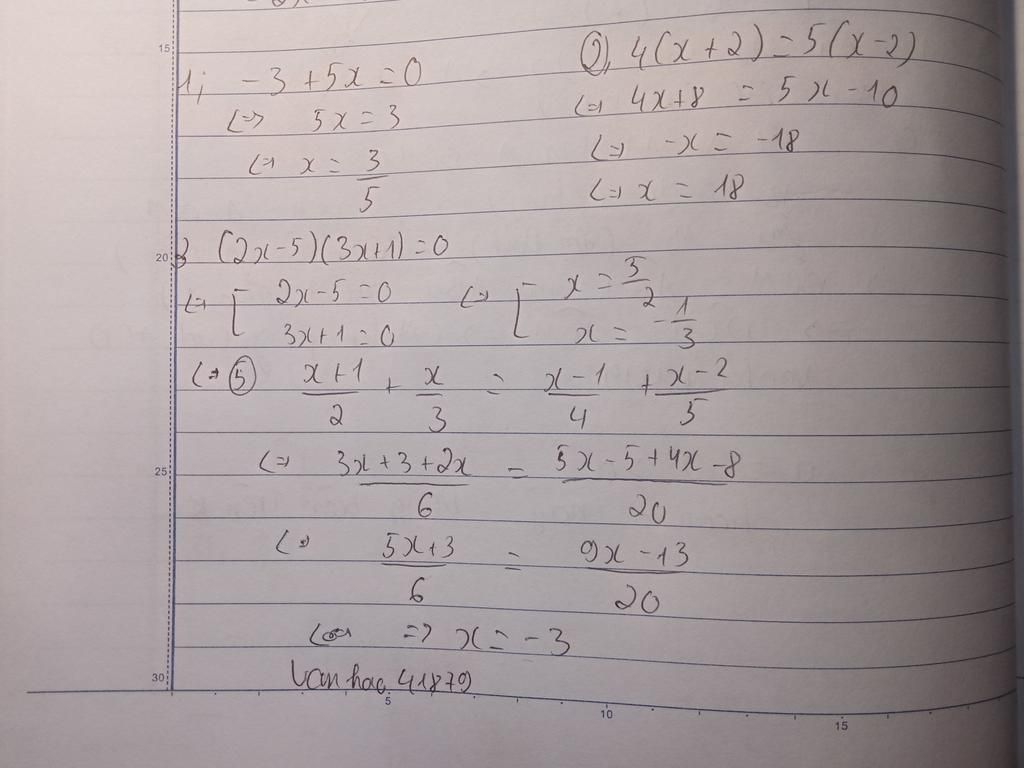 15
1, -3 + 5x = 0
<=> 5x = 3
<=> x = 3/5
2, 4(x + 2) = 5(x - 2)
<=> 4x + 8 = 5x - 10
<=> -x = -18
<=> x = 18
20
3 (2x - 5)(3x + 1) = 0
<=> [ 2x - 5 = 0 <=> [ x = 5/2
3x + 1 = 0 x = -1/3
<=> 5 (x + 1)/2 + x/3 = (x - 1)/4 + (x - 2)/5
25
<=> (3x + 3 + 2x)/6 = (5x - 5 + 4x - 8)/20
<=> (5x + 3)/6 = (9x - 13)/20
=> x = -3
30
vanhao 41879
5 10 15